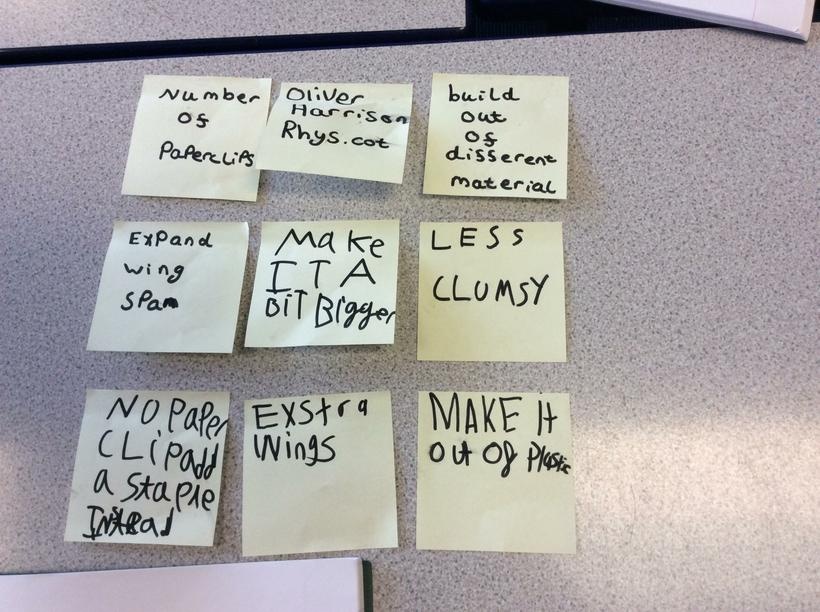 Number
Of
PaperclIPs
Oliver
Harrison
Rhys.cot
build
out
Of
different
material
ExPand
wing
span
Make
IT A
BiT Bigger
LESS
CLUMSY
NO Paper
CLiP add
a Staple
Instead
Exstra
Wings
MAKE It
Out Of Plastic